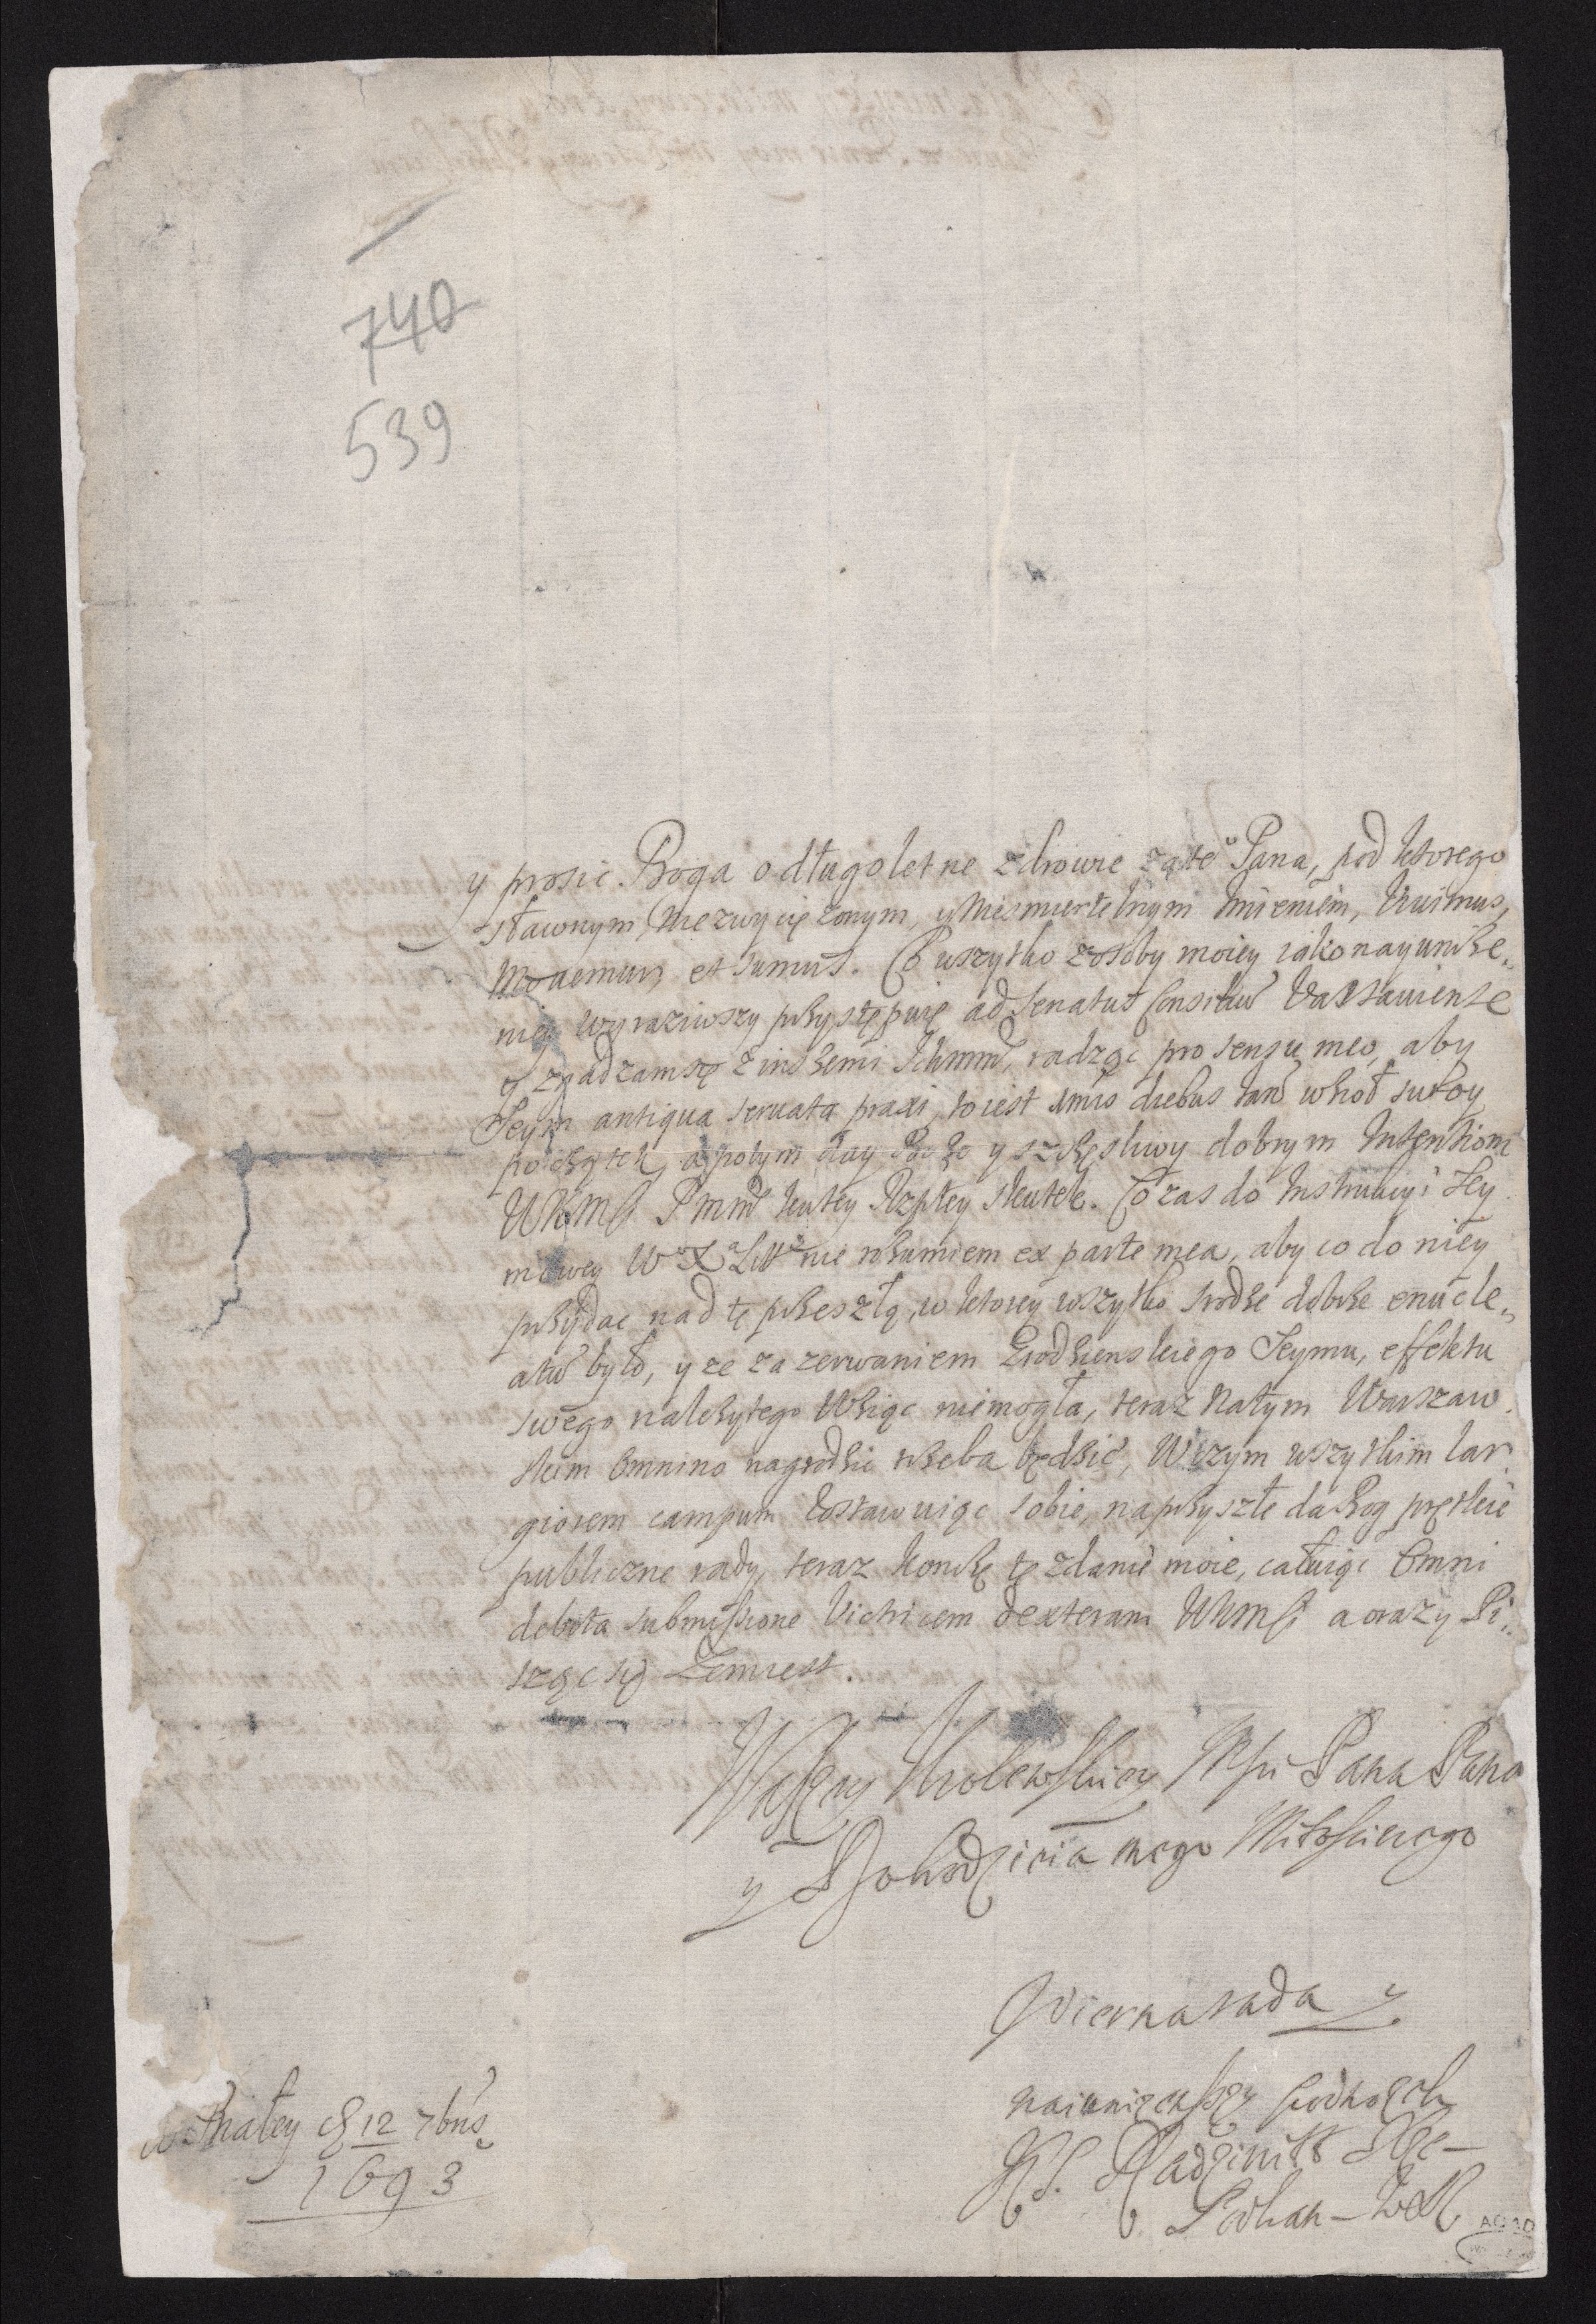 740
539
y prosic Boga o długoletne zdrowie za te° Pana, pod ktorego
sławnym, Niezwyciężonym, y Niesmiertelnym Imieniem, Vivimus,
Movemur, et sumus. Co wszytko z osoby moiey iako nayuniże„
niey wyraziwszy przystępuię ad Senatus Consilium Varsaviense
y zgadzam się z inszemi Ichmm, radząc pro sensu meo, aby
Seym antiqua servata praxi, to iest diebus swoy
początek, a potym day Boże y szczęsliwy dobrym Intentiom
WKMsci P m m kutey Rzptey skutek. Co zas do Instrukcyi Sey
mowey W° X ª Litt° nie rozumiem ex parte mea, aby co do niey
przydac nad tę przeszłą, w ktorey wszytko srodze dobrze enucle„
atum było, y ze za zerwaniem Grodzienskiego Seymu, effektu
swego należytego wziąc niemogła, teraz na tym Warszaw.
skim Omnino nagrodzic trzeba będzie, W czym wszytkim lar
giorem campum zostawuiąc sobie, na przyszłe da Bog prętkie
publiczne rady, teraz konczę tę zdanie moie, całuiąc Omni
debita submissione Victricem dexteram WKMsci a oraz y Pi„
sząc się Zemiest.
Waszey Krolewskiey Msci Pana Pana
y Dobrodzieia mego Miłosciwego
Wierna rada y
nainizszy podnozek
Radziwiłł
w Białey d 12 7bris
1693